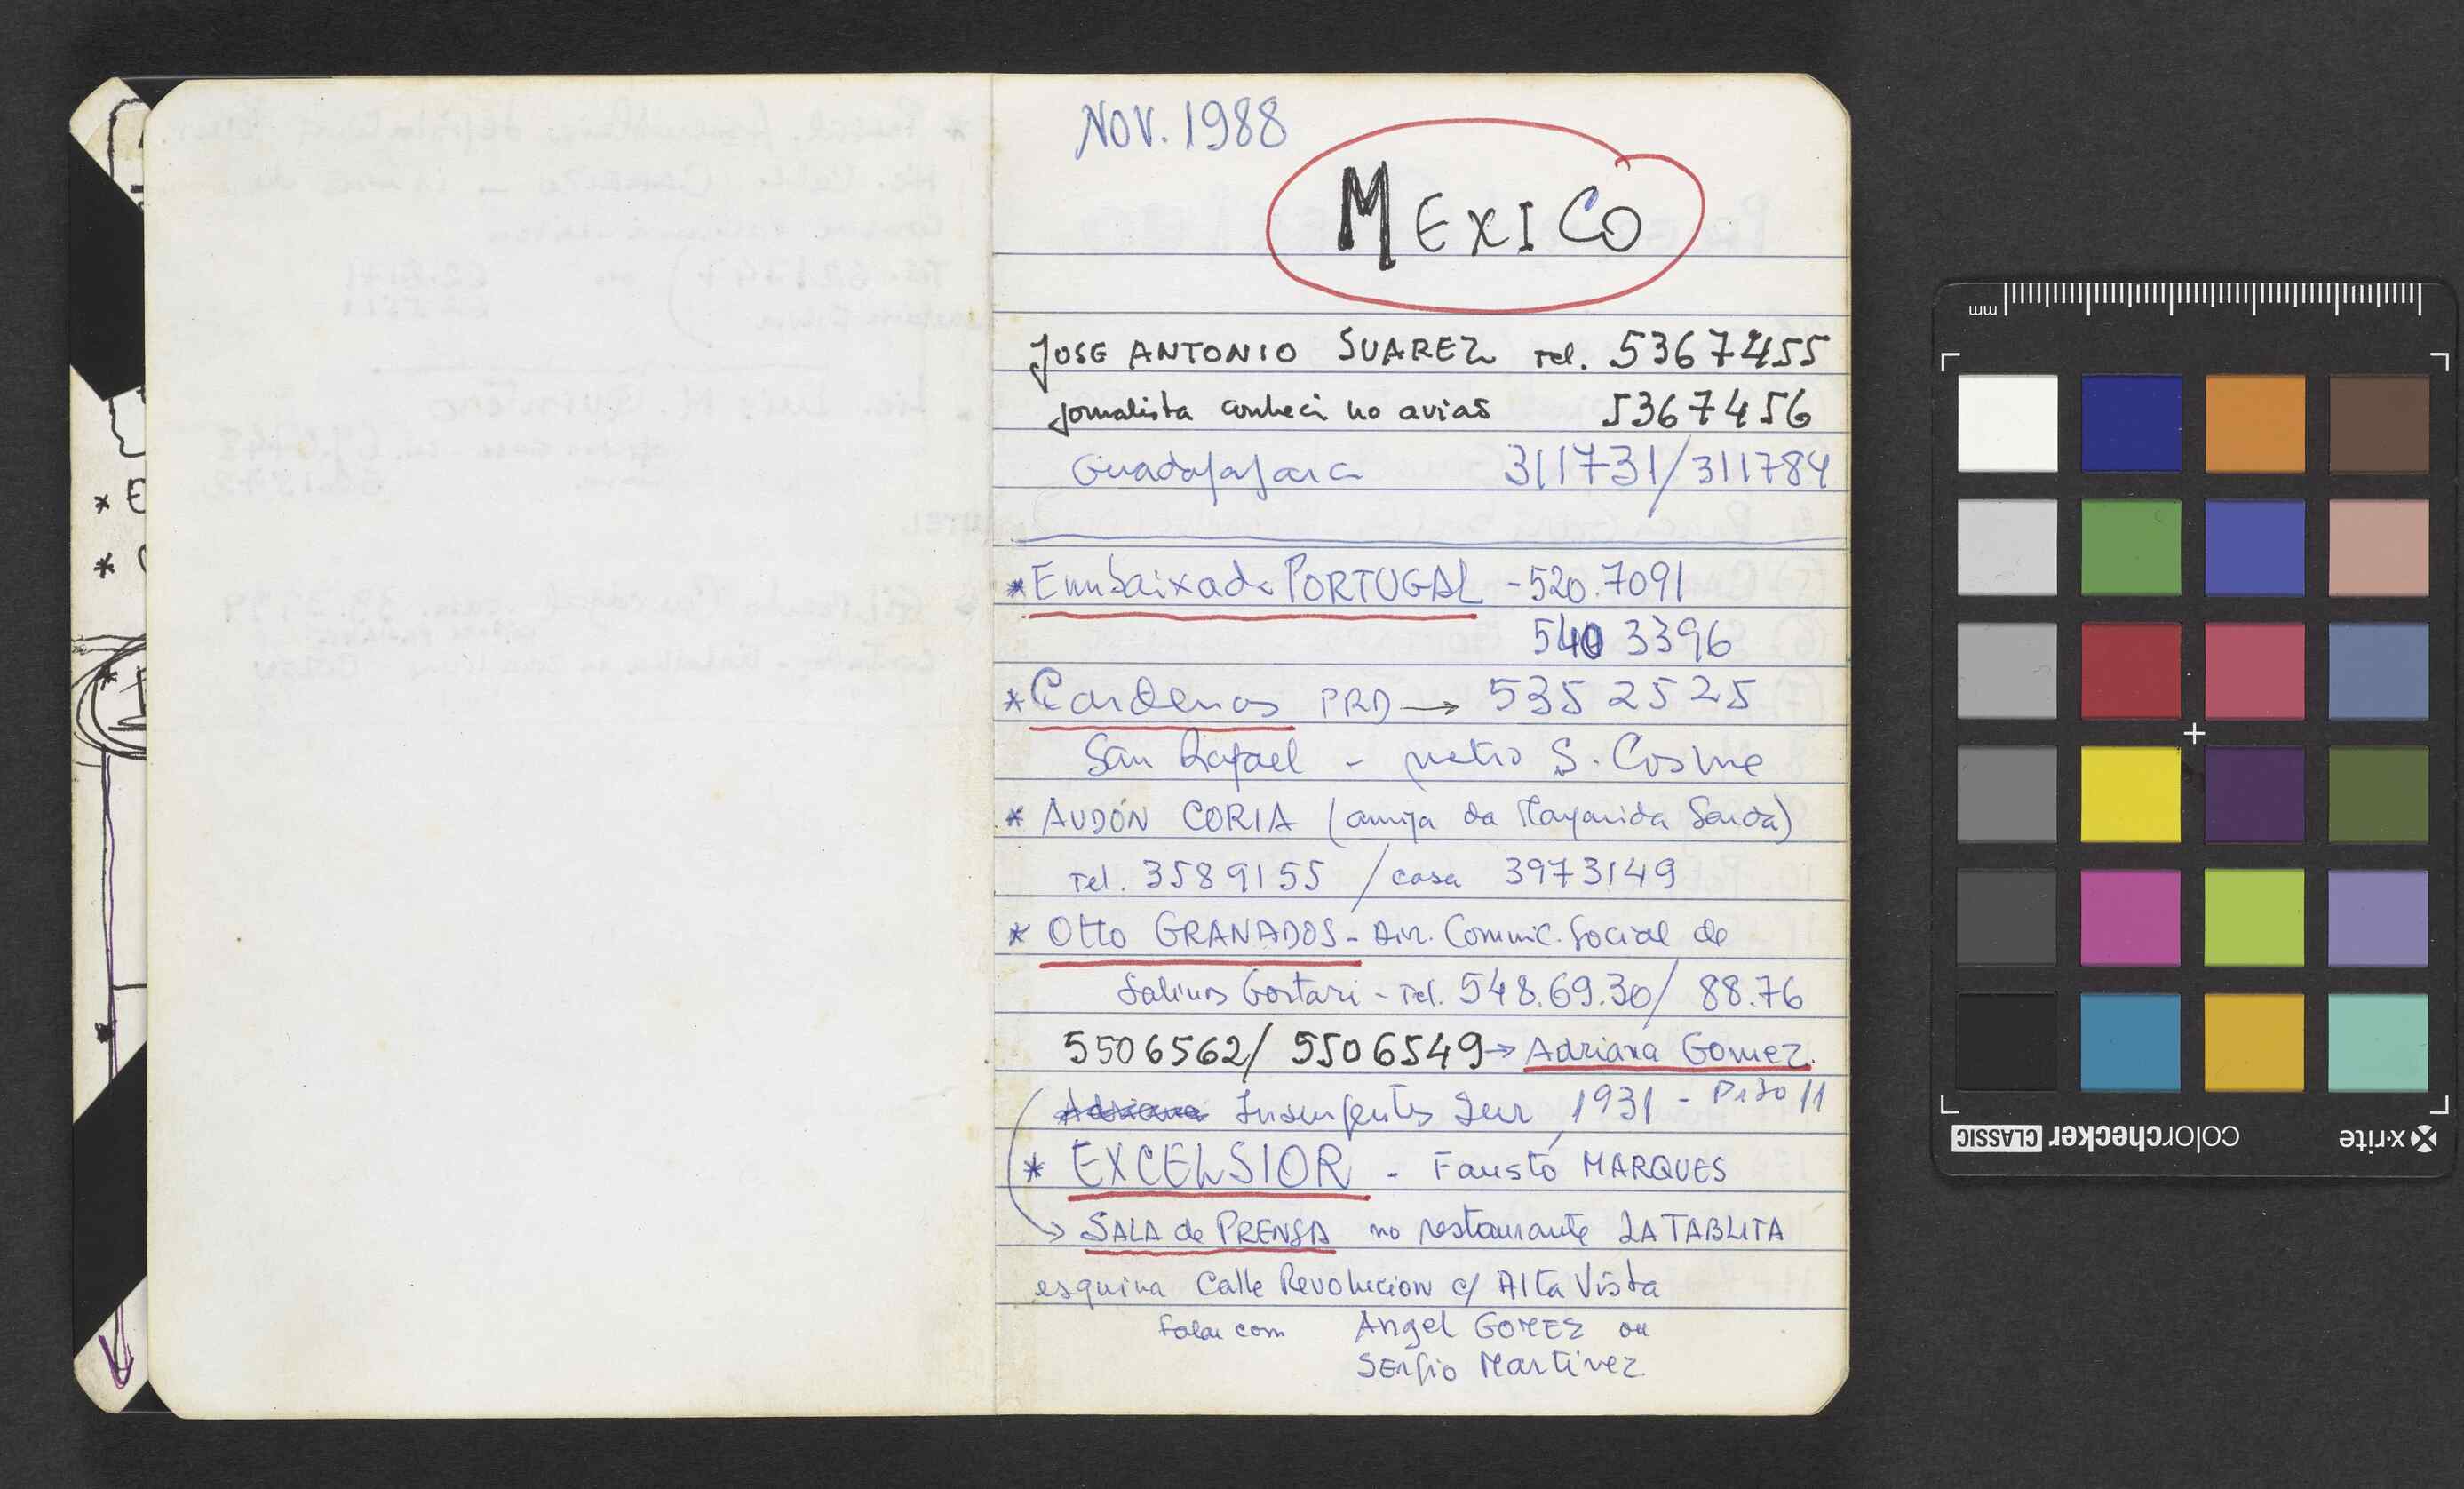 NOV. 1988
MEXICO
JOSE ANTONIO SUAREZ Tel. 5367455
jornalista conheci no avião 5367456
Guadalajara 311731/311784
* Embaixada PORTUGAL - 520.7091
540 3396
* Cardenas PRD → 535 2525
San Rafael - metro S. Cosme
* AUDÓN CORIA (amiga da Margarida
Tel. 3589155 / casa 3973149
* Otto GRANADOS - Dir. Comunic. Social de
Salinas Gortari - Tel. 548.69.30/ 88.76
5506562/ 5506549 → Adriana Gomez.
Adriana Insurgentes Sur 1931 - Piso 11
* EXCELSIOR - Fausto MARQUES
→ SALA de PRENSA no restaurante LA TABLITA
esquina Calle Revolucion c/ Alta Vista
falar com Angel GOMEZ ou
SERGIO Martinez
* E
*
mm
x-rite colorchecker CLASSIC